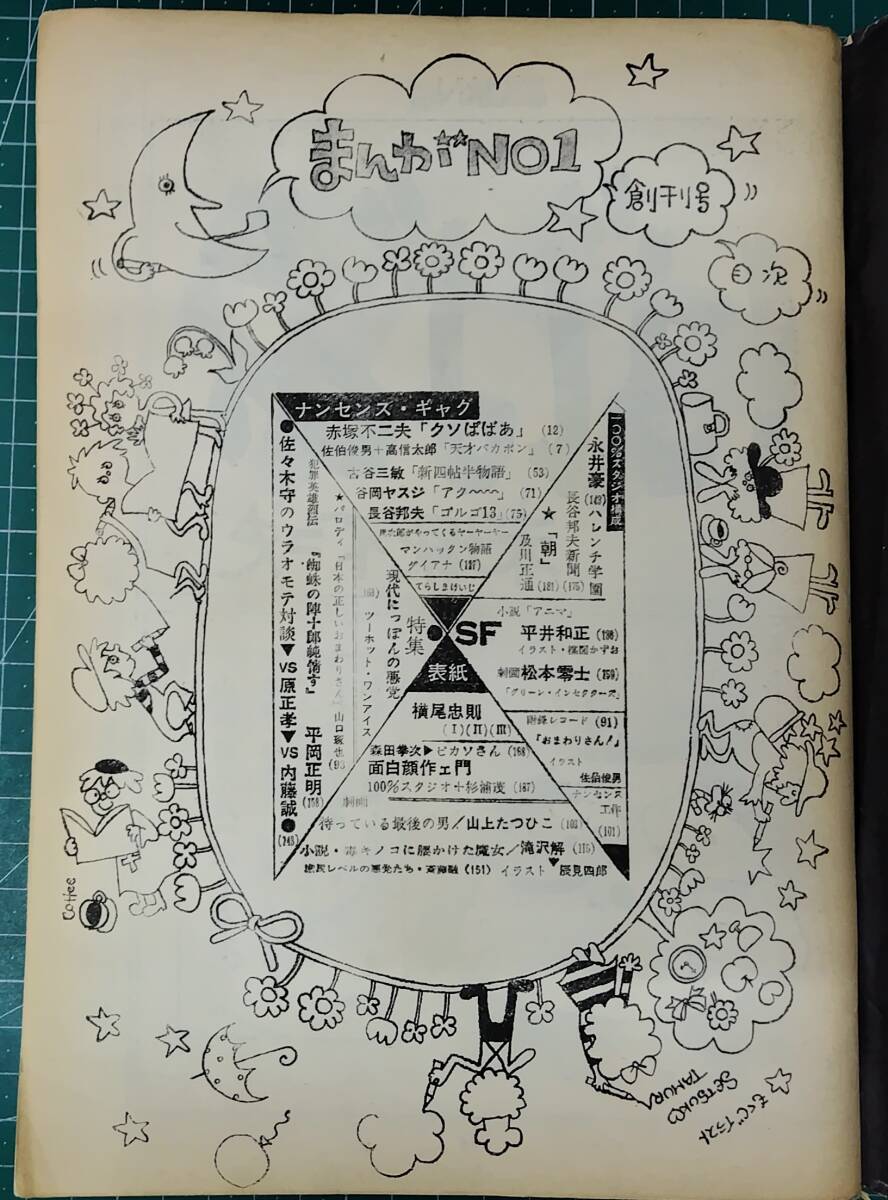 まんがNO1
創刊号
目次
ナンセンズ・ギャグ
赤塚不二夫「クソばばあ」(12)
佐伯俊男+高信太郎「天才バカボン」(7)
古谷三敏「新四帖半物語」(53)
谷岡ヤスジ「アク〜〜」(71)
長谷邦夫「ゴルゴ13」(75)
マンハッタン物語
ダイアナ(127)
てらしまけいじ
一〇〇%スタジオ構成
永井豪(143)ハレンチ学園
長谷邦夫新聞(175)
★「朝」
及川正通(131)
●佐々木守のウラオモテ対談▼VS原正孝▼VS内藤誠●(243)
犯罪英雄烈伝『蜘蛛の陣十郎純情す』平岡正明(158)
★パロディ「日本の正しいおまわりさん」山口琢也(93)
現代にっぽんの悪党
ツーホット・ワンアイス
特集
●SF
小説「アニマ」
平井和正(198)
イラスト・楳図かずお
劇画松本零士(259)
「グリーン・インセクターズ」
表紙
横尾忠則
(I)(II)(III)
附録レコード(91)
『おまわりさん!』
イラスト
佐伯俊男
ナンセンス
工作
(101)
森田拳次▶ピカソさん(168)
面白顔作ェ門
100%スタジオ+杉浦茂(187)
劇画
待っている最後の男/山上たつひこ(103)
小説・毒キノコに腰かけた魔女/滝沢解(115)
庶民レベルの悪党たち・斎藤融(151)イラスト
辰見四郎
Coffee
SETSUKO
TAMURA
もくじイラスト